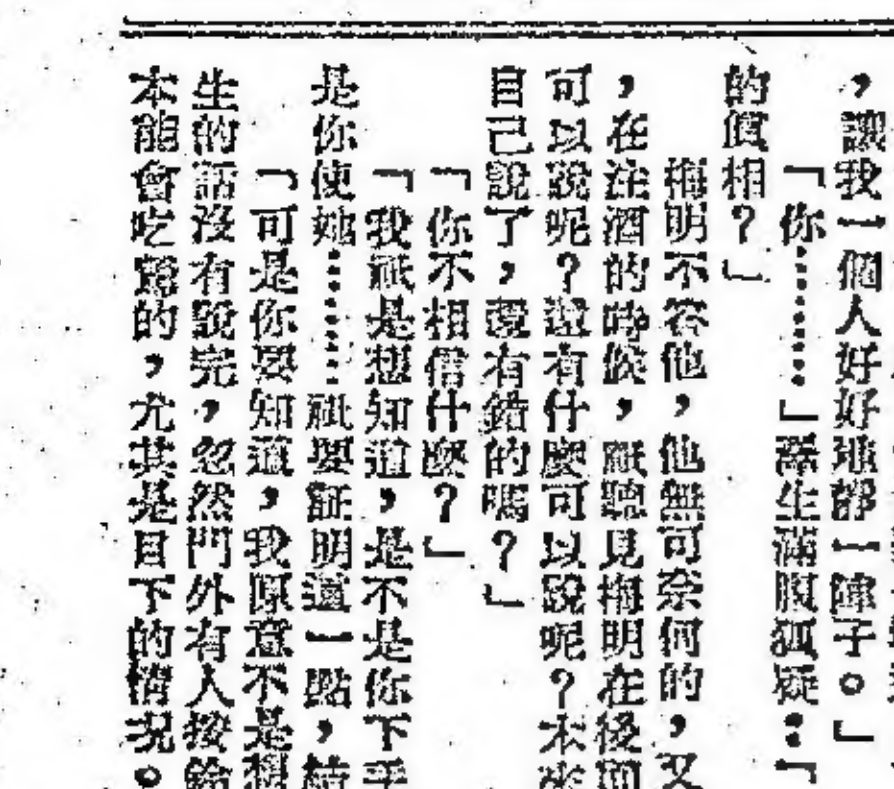 ，讓我一個人好好地靜一陣子。」
「你………」澤生滿腹狐疑：「
的價相？」
梅明不答他，他無可奈何的，又
，在注酒的時候，祇聽見梅明在後面
可以說呢？還有什麼可以說呢？本來
自己說了，還有錯的嗎？」
「你不相信什麼？」
「我祇是想知道，是不是你下手
是你使她………祇要証明這一點，
「可是你要知道，我原意不是想
生的話沒有說完，忽然門外有人按鈴
本能會吃驚的，尤其是目下的情況。